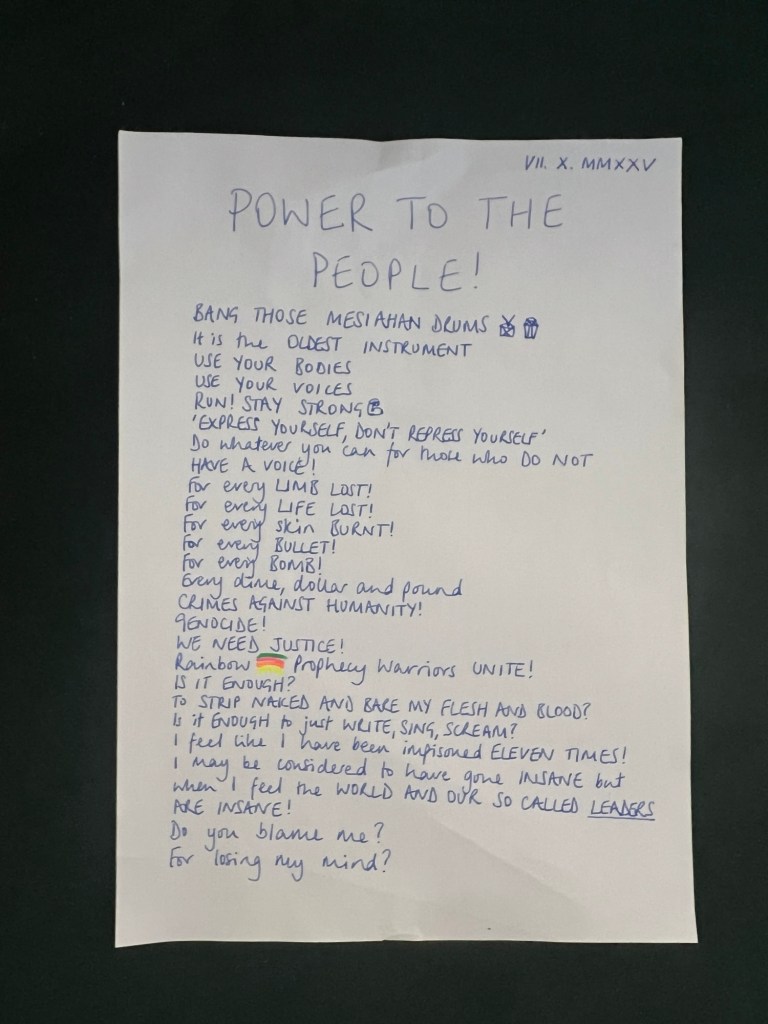 VII. X. MMXXV
POWER TO THE
PEOPLE!
BANG THOSE MESIAHAN DRUMS
It is the OLDEST INSTRUMENT
USE YOUR BODIES
USE YOUR VOICES
RUN! STAY STRONG
'EXPRESS YOURSELF, DON'T REPRESS YOURSELF'
Do whatever you can for those who DO NOT
HAVE A VOICE!
For every LIMB LOST!
For every LIFE LOST!
For every skin BURNT!
For every BULLET!
For every BOMB!
Every dime, dollar and pound
CRIMES AGAINST HUMANITY!
GENOCIDE!
WE NEED JUSTICE!
Rainbow Prophecy Warriors UNITE!
IS IT ENOUGH?
TO STRIP NAKED AND BARE MY FLESH AND BLOOD?
Is it ENOUGH to just WRITE, SING, SCREAM?
I feel like I have been imprisoned ELEVEN TIMES!
I may be considered to have gone INSANE but
when I feel the WORLD AND OUR SO CALLED LEADERS
ARE INSANE!
Do you blame me?
For losing my mind?